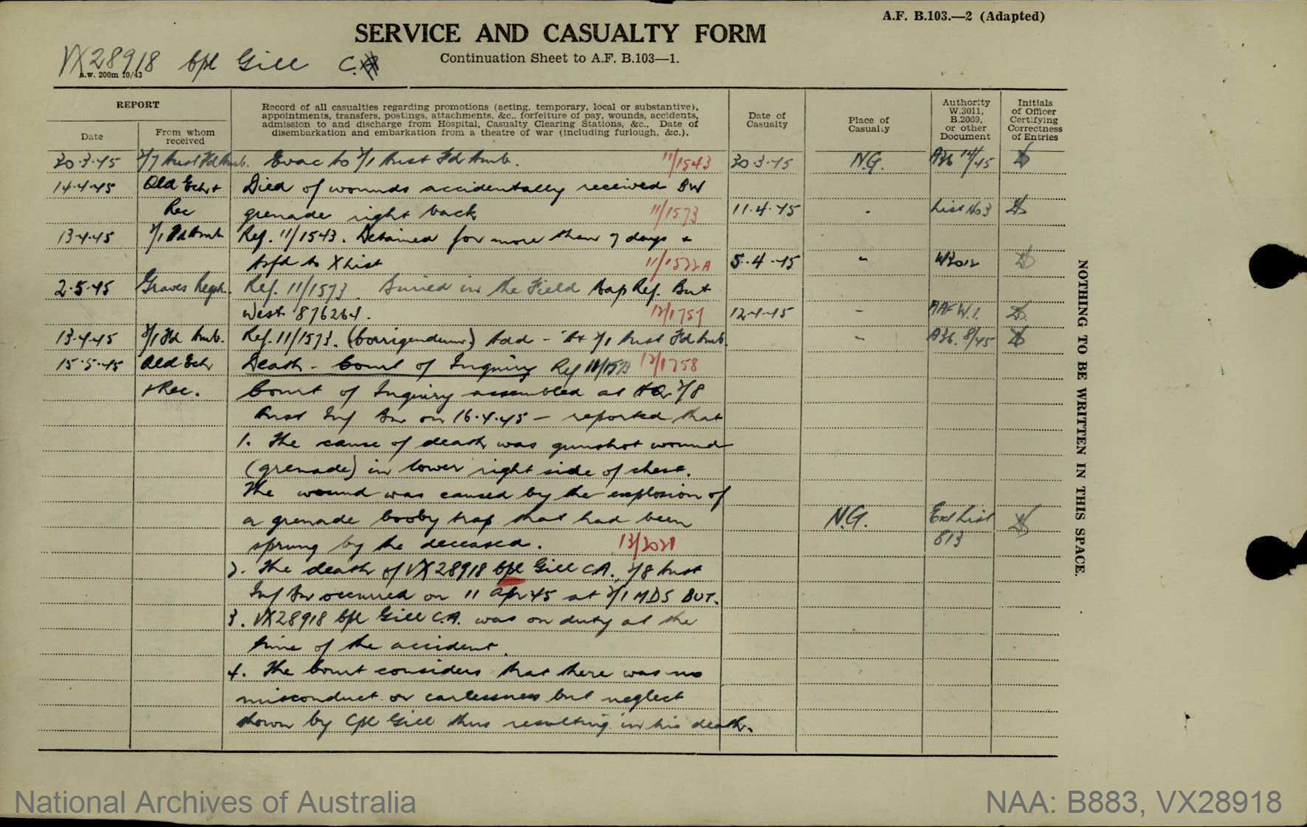 A.F. B.103.—2 (Adapted)
SERVICE AND CASUALTY FORM
Continuation Sheet to A.F. B.103—1.
VX28918 Cpl Gill C.A.
A.w. 200m 10/43
REPORT
Date
From whom received
Record of all casualties regarding promotions (acting, temporary, local or substantive),
appointments, transfers, postings, attachments, &c., forfeiture of pay, wounds, accidents,
admission to and discharge from Hospital, Casualty Clearing Stations, &c., Date of
disembarkation and embarkation from a theatre of war (including furlough, &c.).
Date of Casualty
Place of Casualty
Authority W.3011, B.2069, or other Document
Initials of Officer Certifying Correctness of Entries
30·3·45 2/7 Aust Fd Amb. Evac to 2/1 Aust Fd Amb. 11/1543 30·3·45 N.G. A36 14/45
14·4·45 Old Ech + Died of wounds accidentally received BW
Rec grenade right back 11/1573 11·4·45 " List No 3
13·4·45 2/1 Fd Amb Ref. 11/1543. Detained for more than 7 days &
tsfd to X List 11/1572A 5·4·45 " W3012
2·5·45 Graves Regn. Ref. 11/1573. Buried in the Field Map Ref. But
West 876264. 12/1757 12·4·45 "
13·4·45 2/1 Fd Amb. Ref. 11/1573. (Corrigendum) Add - At 2/1 Aust Fd Amb. " A36. 8/45
15·5·45 Old Ech Death - Court of Inquiry Ref 11/1573 12/1758
+ Rec. Court of Inquiry assembled at HQ 2/8
Aust Inf Bn on 16·4·45 — reported that
1. The cause of death was gunshot wound
(grenade) in lower right side of chest.
The wound was caused by the explosion of
a grenade booby trap that had been N.G. Ext List
sprung by the deceased. 12/2021 813
2. The death of VX28918 Cpl Gill C.A. 2/8 Aust
Inf Bn occurred on 11 Apr 45 at 2/1 MDS BUT.
3. VX28918 Cpl Gill C.A. was on duty at the
time of the accident.
4. The Court considers that there was no
misconduct or carlessness but neglect
shown by Cpl Gill thus resulting in his death.
NOTHING TO BE WRITTEN IN THIS SPACE.
National Archives of Australia
NAA: B883, VX28918